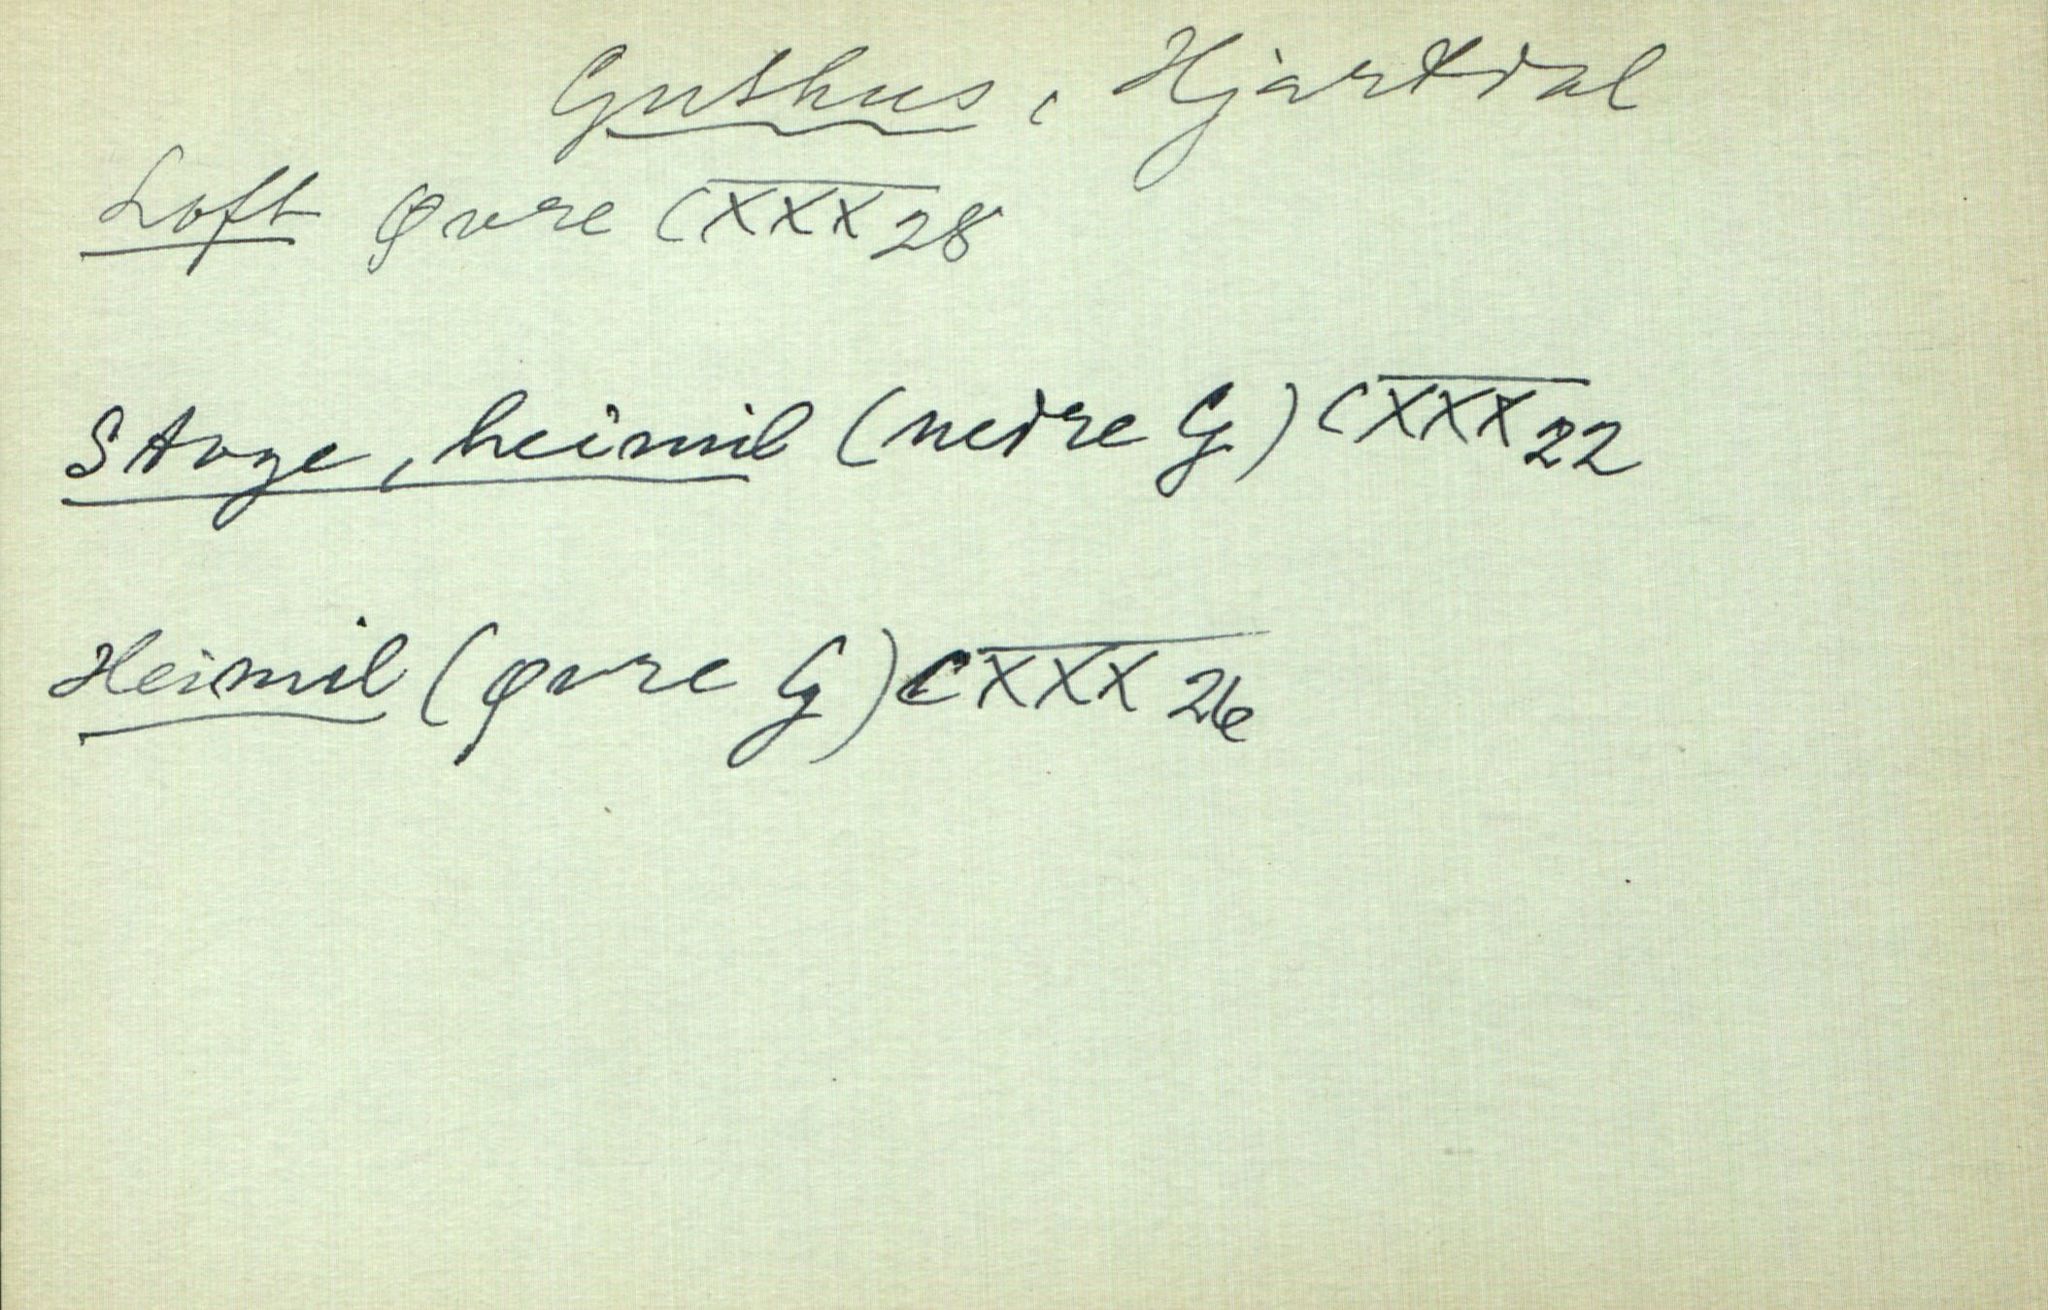 Guthus, Hjartdal
Loft øvre CXXX 28
Stoge, heimil (nedre G) CXXX 22
Heimil (øvre G) CXXX 26